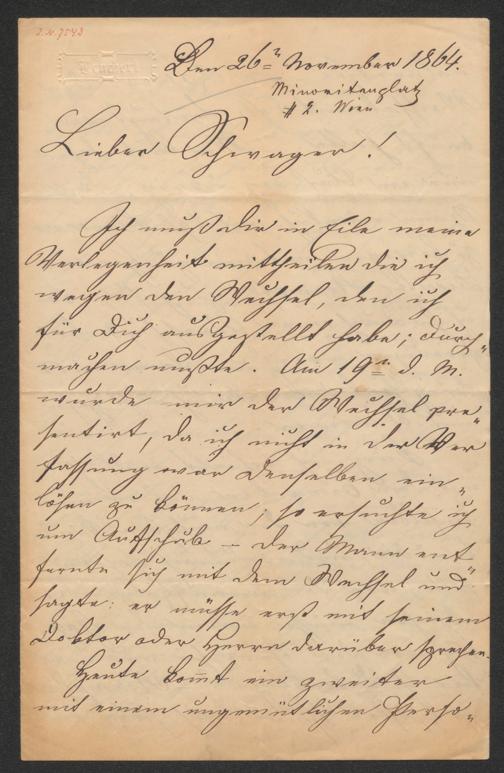 I. N. 7542
Den 26ⁿ November 1864.
Minoritenplatz
# 2. Wien
Lieber Schwager!
Ich muß dir in Eile meine
Verlegenheit mittheilen die ich
wegen den Wechsel, den ich
für Dich ausgestellt habe; durch„
machen mußte. Am 19ⁿ d. M.
wurde mir der Wechsel pre„
sentirt, da ich nicht in der Ver
fassung war denselben ein„
lösen zu können; so ersuchte ich
um Aufschub – der Mann ent„
fernte sich mit dem Wechsel und
sagte: er müsse erst mit seinem
Doktor oder Herrn darüber sprechen.
Heute kom̄t ein zweiter
mit einem ungemütlichen Perso„